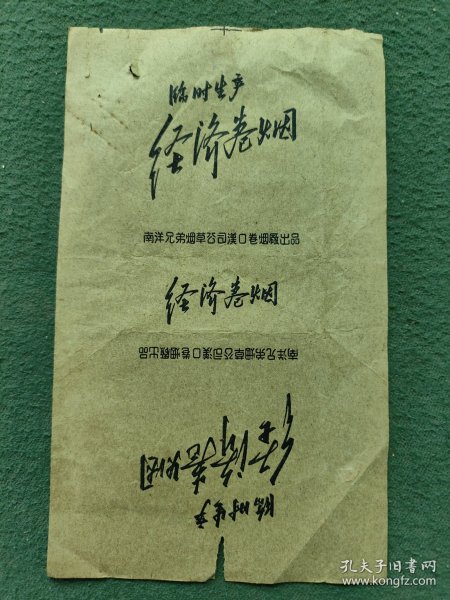 临时生产
经济卷烟
南洋兄弟烟草公司漢口卷烟厰出品
经济卷烟
南洋兄弟烟草公司漢口卷烟厰出品
经济卷烟
临时生产
孔夫子旧书网
www.kongfz.com